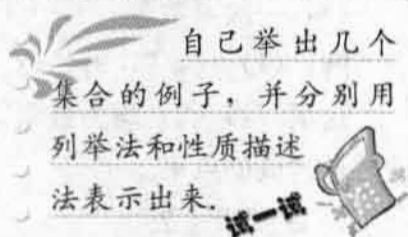 自己举出几个
集合的例子，并分别用
列举法和性质描述
法表示出来.
试一试